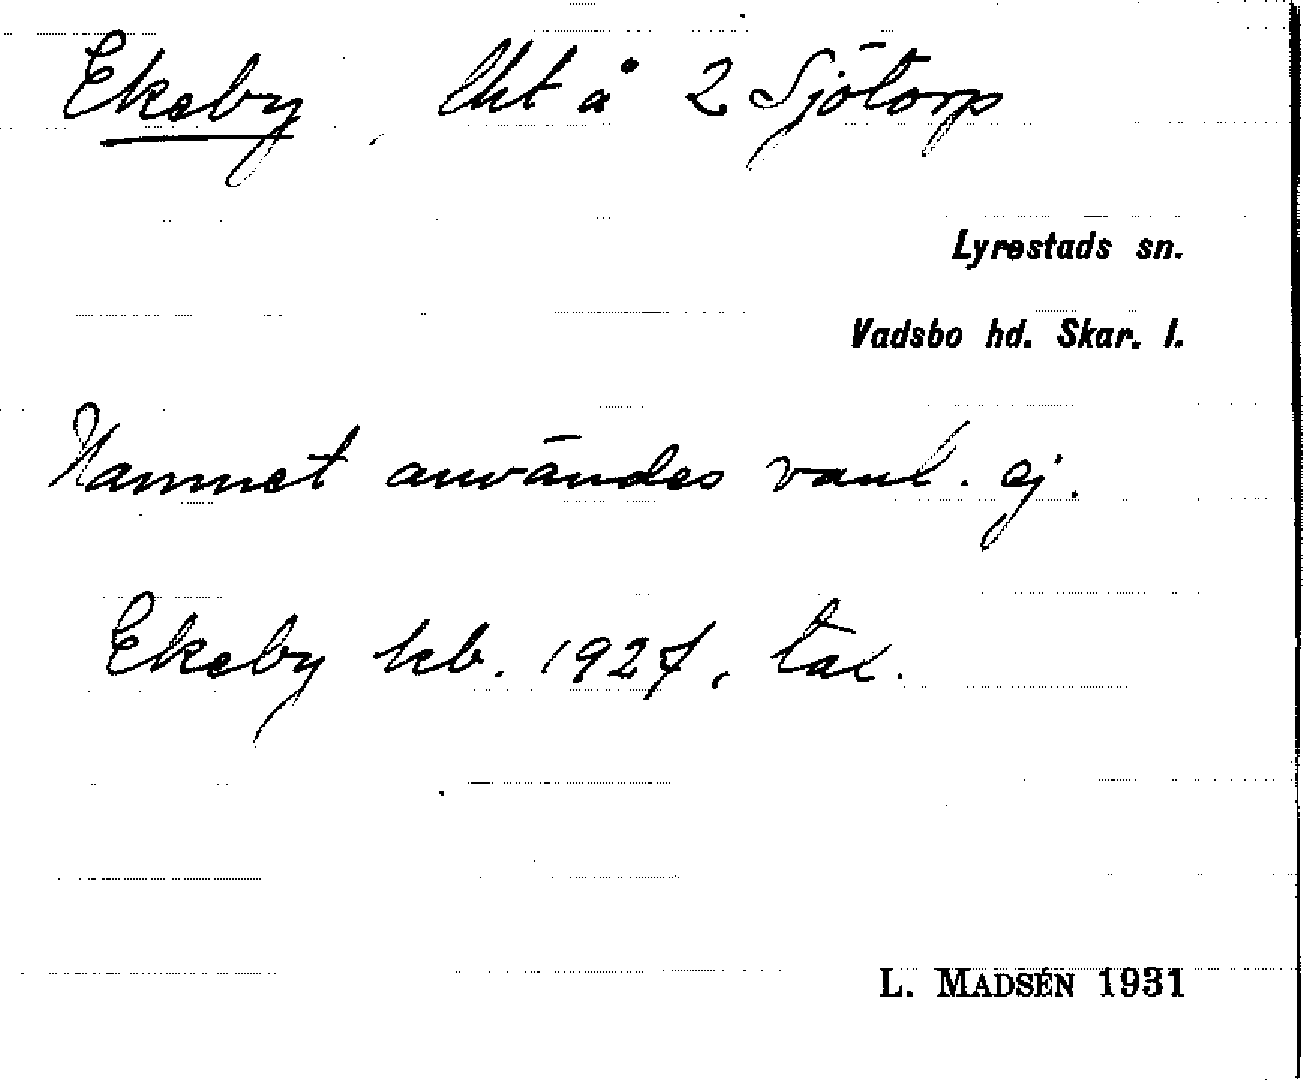 Ekeby, lht å 2 Sjötorp
Lyrestads sn.
Vadsbo hd. Skar. l.
Namnet användes vanl. ej.
Ekeby kb. 1927, tax.
L. MADSÉN 1931